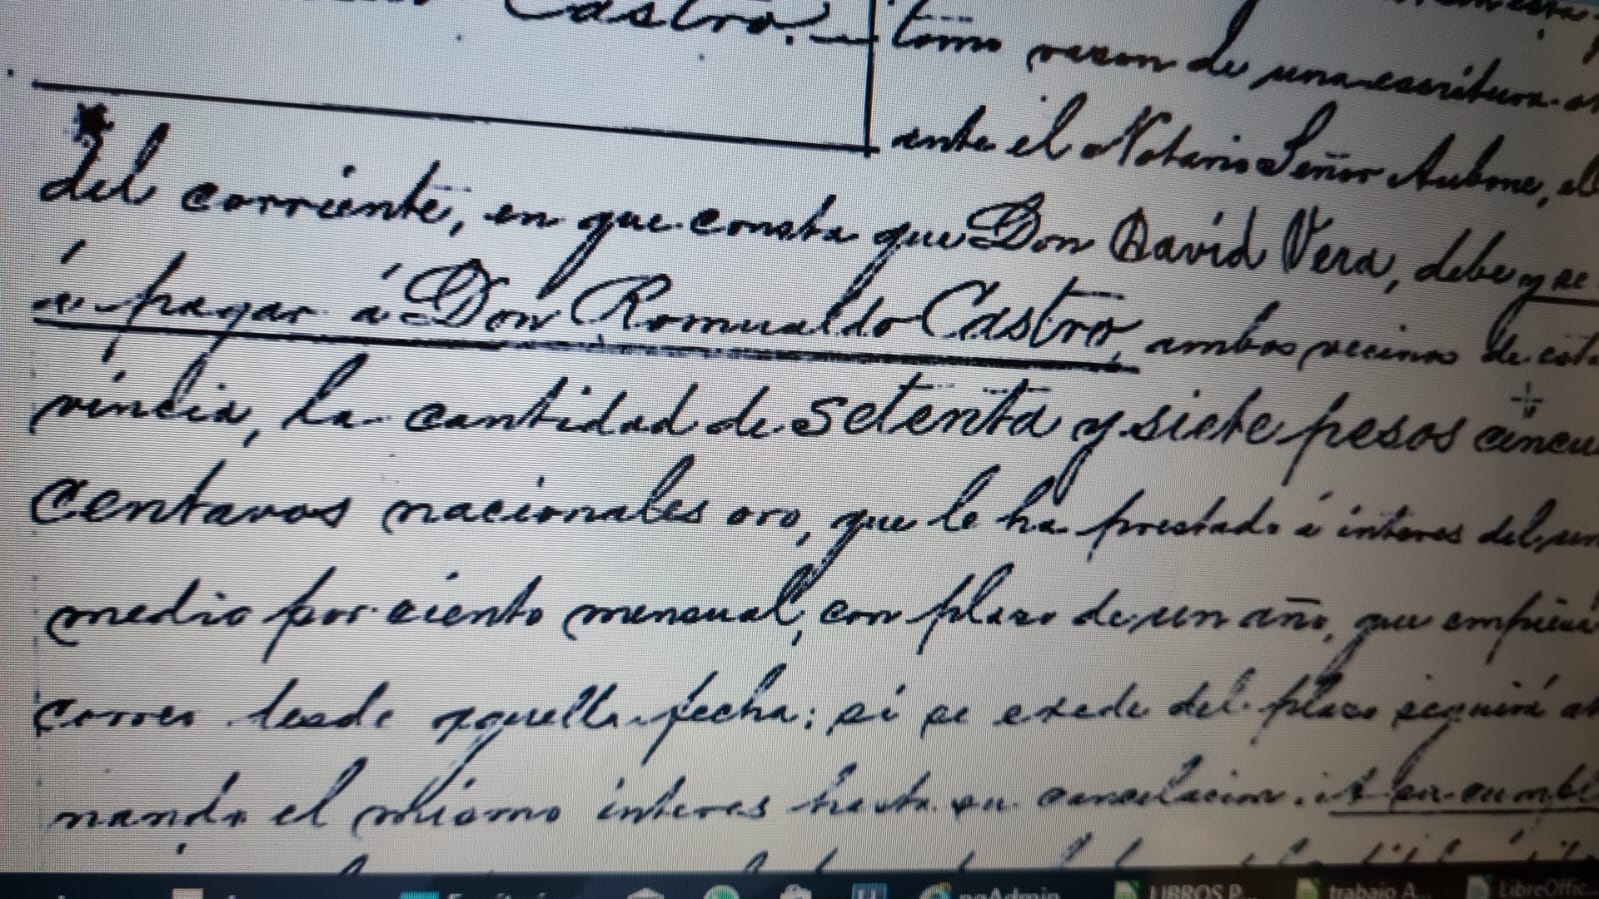 Castro.
tomo razon de una escritura
ante el Notario Señor Aubone, el
del corriente, en que consta que Don David Vera, debe y se
á pagar á Don Romualdo Castro, ambos vecinos de esta
vincia, la cantidad de setenta y siete pesos cincu
centavos nacionales oro, que le ha prestado á interes del un
medio por ciento mensual, con plazo de un año, que empieza
correr desde aquella fecha; si se exede del plazo seguirá ab
nando el mismo interes hasta su cancelacion.
pgAdmin
LIBROS P...
trabajo A...
LibreOffic...